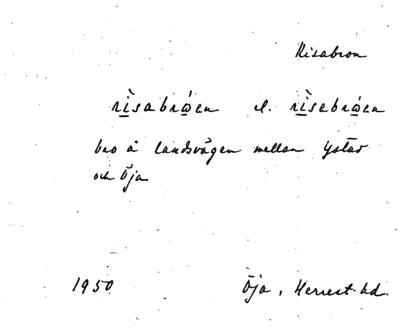 Risabron
rìsabrώen el. rìsebrώen
bro å landsvägen mellan Ystad
och Öja
1950 Öja, Herrest. hd.